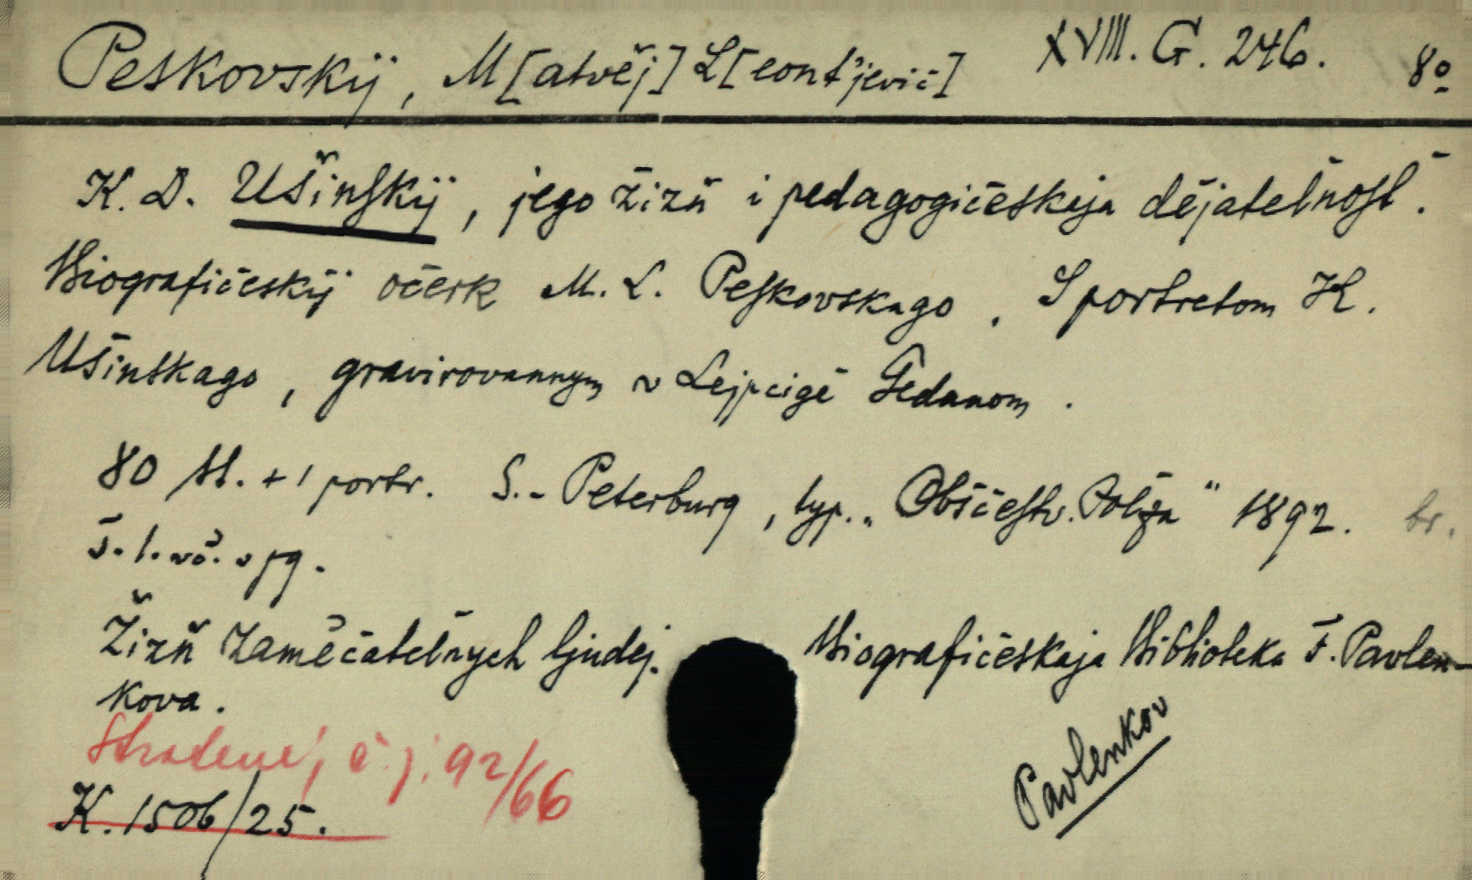 Peskovskij, M[atvěj] L[eont'jevič] XVIII. G. 246. 8º
K. D. Ušinskij, jego žizň i pedagogičeskaja dějatelnosť.
Biografičeskij očerk M. L. Peskovskago. S portretom K.
Ušinskago, gravirovannym v Lejpcigě Gedanom.
80 st. + 1 portr. S.-Peterburg, typ. „Obščestv. Polza" 1892. br.
Žizň zaměčatelnych ljudej. Biografičeskaja Biblioteka F. Pavlen-
kova.
Ztracené, č. j. 92/66
K. 1506/25.
Pavlenkov